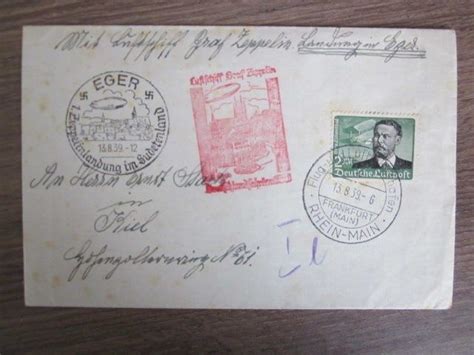 Mit Luftschiff Graf Zeppelin Landung in Eger.
EGER
1. Zeppelinlandung im Sudetenland
13.8.39.-12
Luftschiff Graf Zeppelin
2
Deutsche Luftpost
13.8.39.-6
FRANKFURT
(MAIN)
RHEIN-MAIN
An Herrn Ernst
in
Kiel
Hohenzollernring No 61.